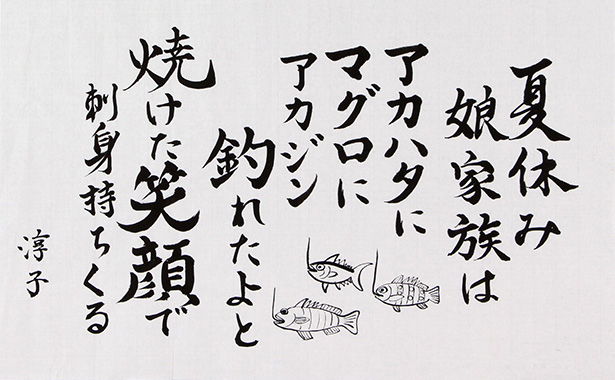 夏休み
娘家族は
アカハタに
マグロに
アカジン
釣れたよと
焼けた笑顔で
刺身持ちくる
淳子